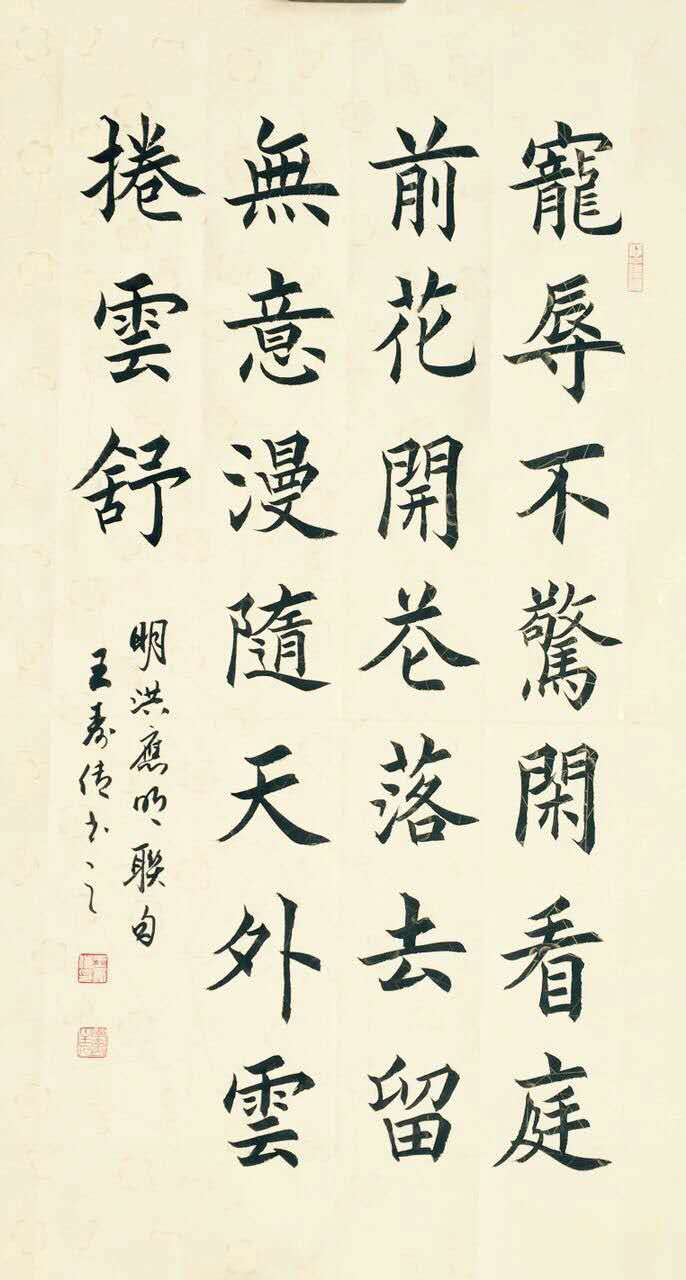 寵辱不驚閑看庭
前花開花落去留
無意漫隨天外雲
捲雲舒
明洪應明聯句
王壽倩書之